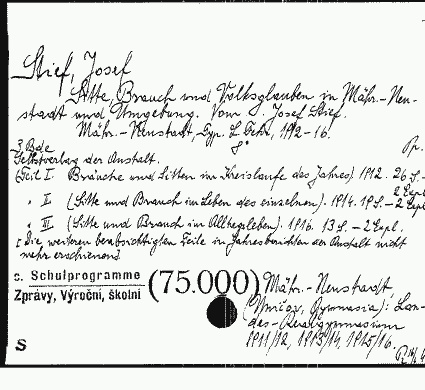 Stief, Josef
Sitte, Brauch und Volksglauben in Mähr.-Neu-
stadt und Umgebung. Von J. Josef Stief.
Mähr.-Neustadt, Typ. L. 1912-16.
8°
3 Bde
Selbstverlag der Anstalt.
(Teil I. Bräuche und Sitten im Kreislaufe des Jahres) 1912. 26 S. -
2 Expl.
" II (Sitte und Brauch im Leben des einzelnen). 1914. 19 S. - 2 Expl.
" III (Sitte und Brauch im Alltagsleben). 1916. 13 S. - 2 Expl.
[Die weiteren beabsichtigten Teile in Jahresberichten der Anstalt nicht
mehr erschienen]
c. Schulprogramme
Zprávy, Výroční, školní
(75.000)
Mähr.-Neustadt
(Uničov, Gymnasia): Lan-
des-Realgymnasium
1911/12, 1913/14, 1915/16.
S